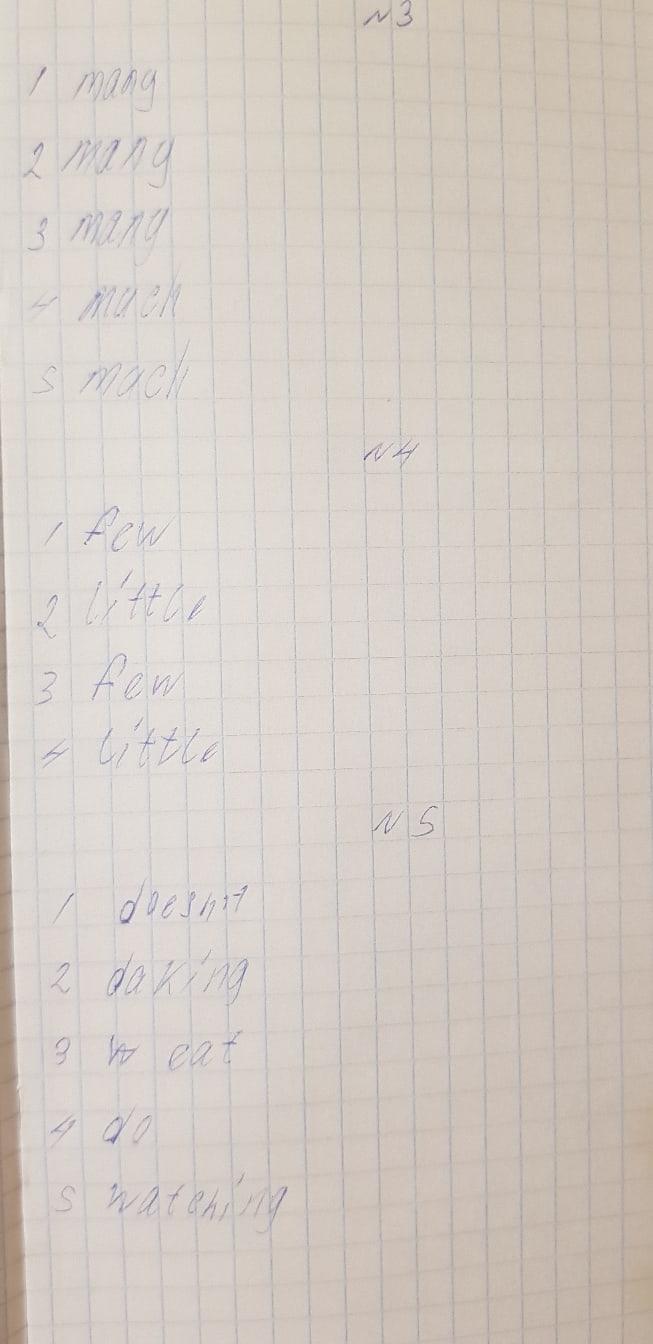 N3
1 many
2 many
3 many
4 much
5 mach
N4
1 few
2 little
3 few
4 little
N5
1 doesn't
2 daking
3 eat
4 do
5 watching